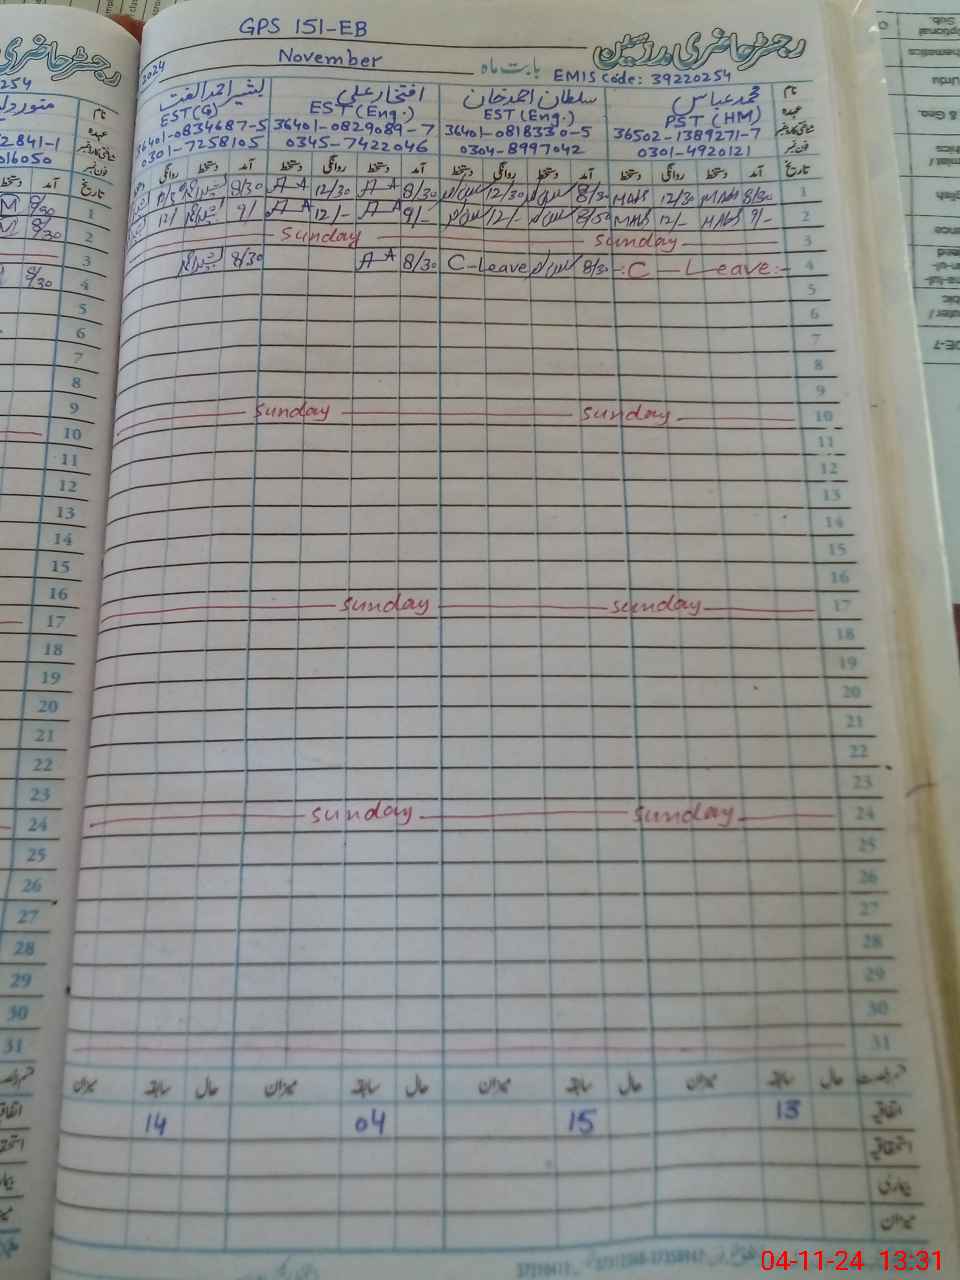 GPS 151-EB
رجسٹر حاضری مدرسین
November
بابت ماہ
2024
EMIS Code: 39220254
نام
محمد عباس
سلطان احمد خان
افتخار علی
بشیر احمد الفت
عہدہ
PST (HM)
EST (Eng.)
EST (Eng.)
EST (G)
شناختی کارڈ نمبر
36502-1389271-7
36401-0818330-5
36401-0829089-7
36401-0834687-5
فون نمبر
0301-4920121
0304-8997042
0345-7422046
0301-7258105
تاریخ آمد دستخط روانگی دستخط آمد دستخط روانگی دستخط آمد دستخط روانگی دستخط آمد دستخط روانگی
1 8/30 12/30 8/30 12/30 8/30 A-A 12/30 A-A 8/30
2 9/- 12/- 8/50 12/- 9/- A-A 12/- A-A 9/- 12/
3 Sunday Sunday
4 :C - Leave:- 8/30 C-Leave 8/30 A-A 8/30
5
6
7
8
9
10 Sunday Sunday
11
12
13
14
15
16
17 Sunday Sunday
18
19
20
21
22
23
24 Sunday Sunday
25
26
27
28
29
30
31
حال سابقہ میزان حال سابقہ میزان حال سابقہ میزان حال سابقہ میزان
اتفاقیہ 13 15 04 14
استحقاقیہ
بیماری
میزان
254
2841-1
016050
1
2
3
4
5
6
7
8
9
10
11
12
13
14
15
16
17
18
19
20
21
22
23
24
25
26
27
28
29
30
31
04-11-24 13:31